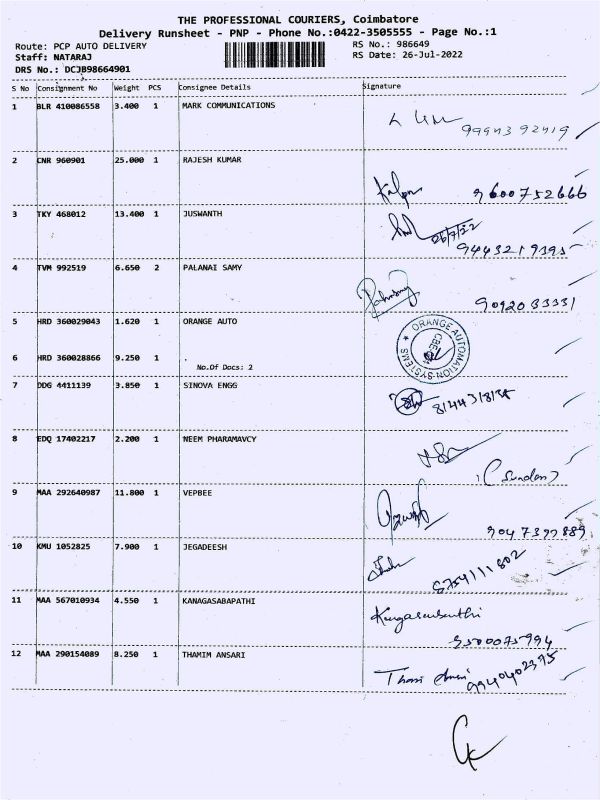 THE PROFESSIONAL COURIERS, Coimbatore
Delivery Runsheet - PNP - Phone No.:0422-3505555 - Page No.:1
Route: PCP AUTO DELIVERY RS No.: 986649
Staff: NATARAJ RS Date: 26-Jul-2022
DRS No.: DCJB98664901
S No Consignment No Weight PCS Consignee Details Signature
1 BLR 410086558 3.400 1 MARK COMMUNICATIONS
2 CNR 960901 25.000 1 RAJESH KUMAR
9600752666
3 TKY 468012 13.400 1 JUSWANTH
26/7/22
4 TVM 992519 6.650 2 PALANAI SAMY
5 HRD 360029043 1.620 1 ORANGE AUTO
ORANGE AUTOMATION SYSTEMS
6 HRD 360028866 9.250 1 .
No.Of Docs: 2
7 DDG 4411139 3.850 1 SINOVA ENGG
8 EDQ 17402217 2.200 1 NEEM PHARAMAVCY
9 MAA 292640987 11.800 1 VEPBEE
9047397889
10 KMU 1052825 7.900 1 JEGADEESH
8754111802
11 MAA 567010934 4.550 1 KANAGASABAPATHI
9500075994
12 MAA 290154089 8.250 1 THAMIM ANSARI
9940402395